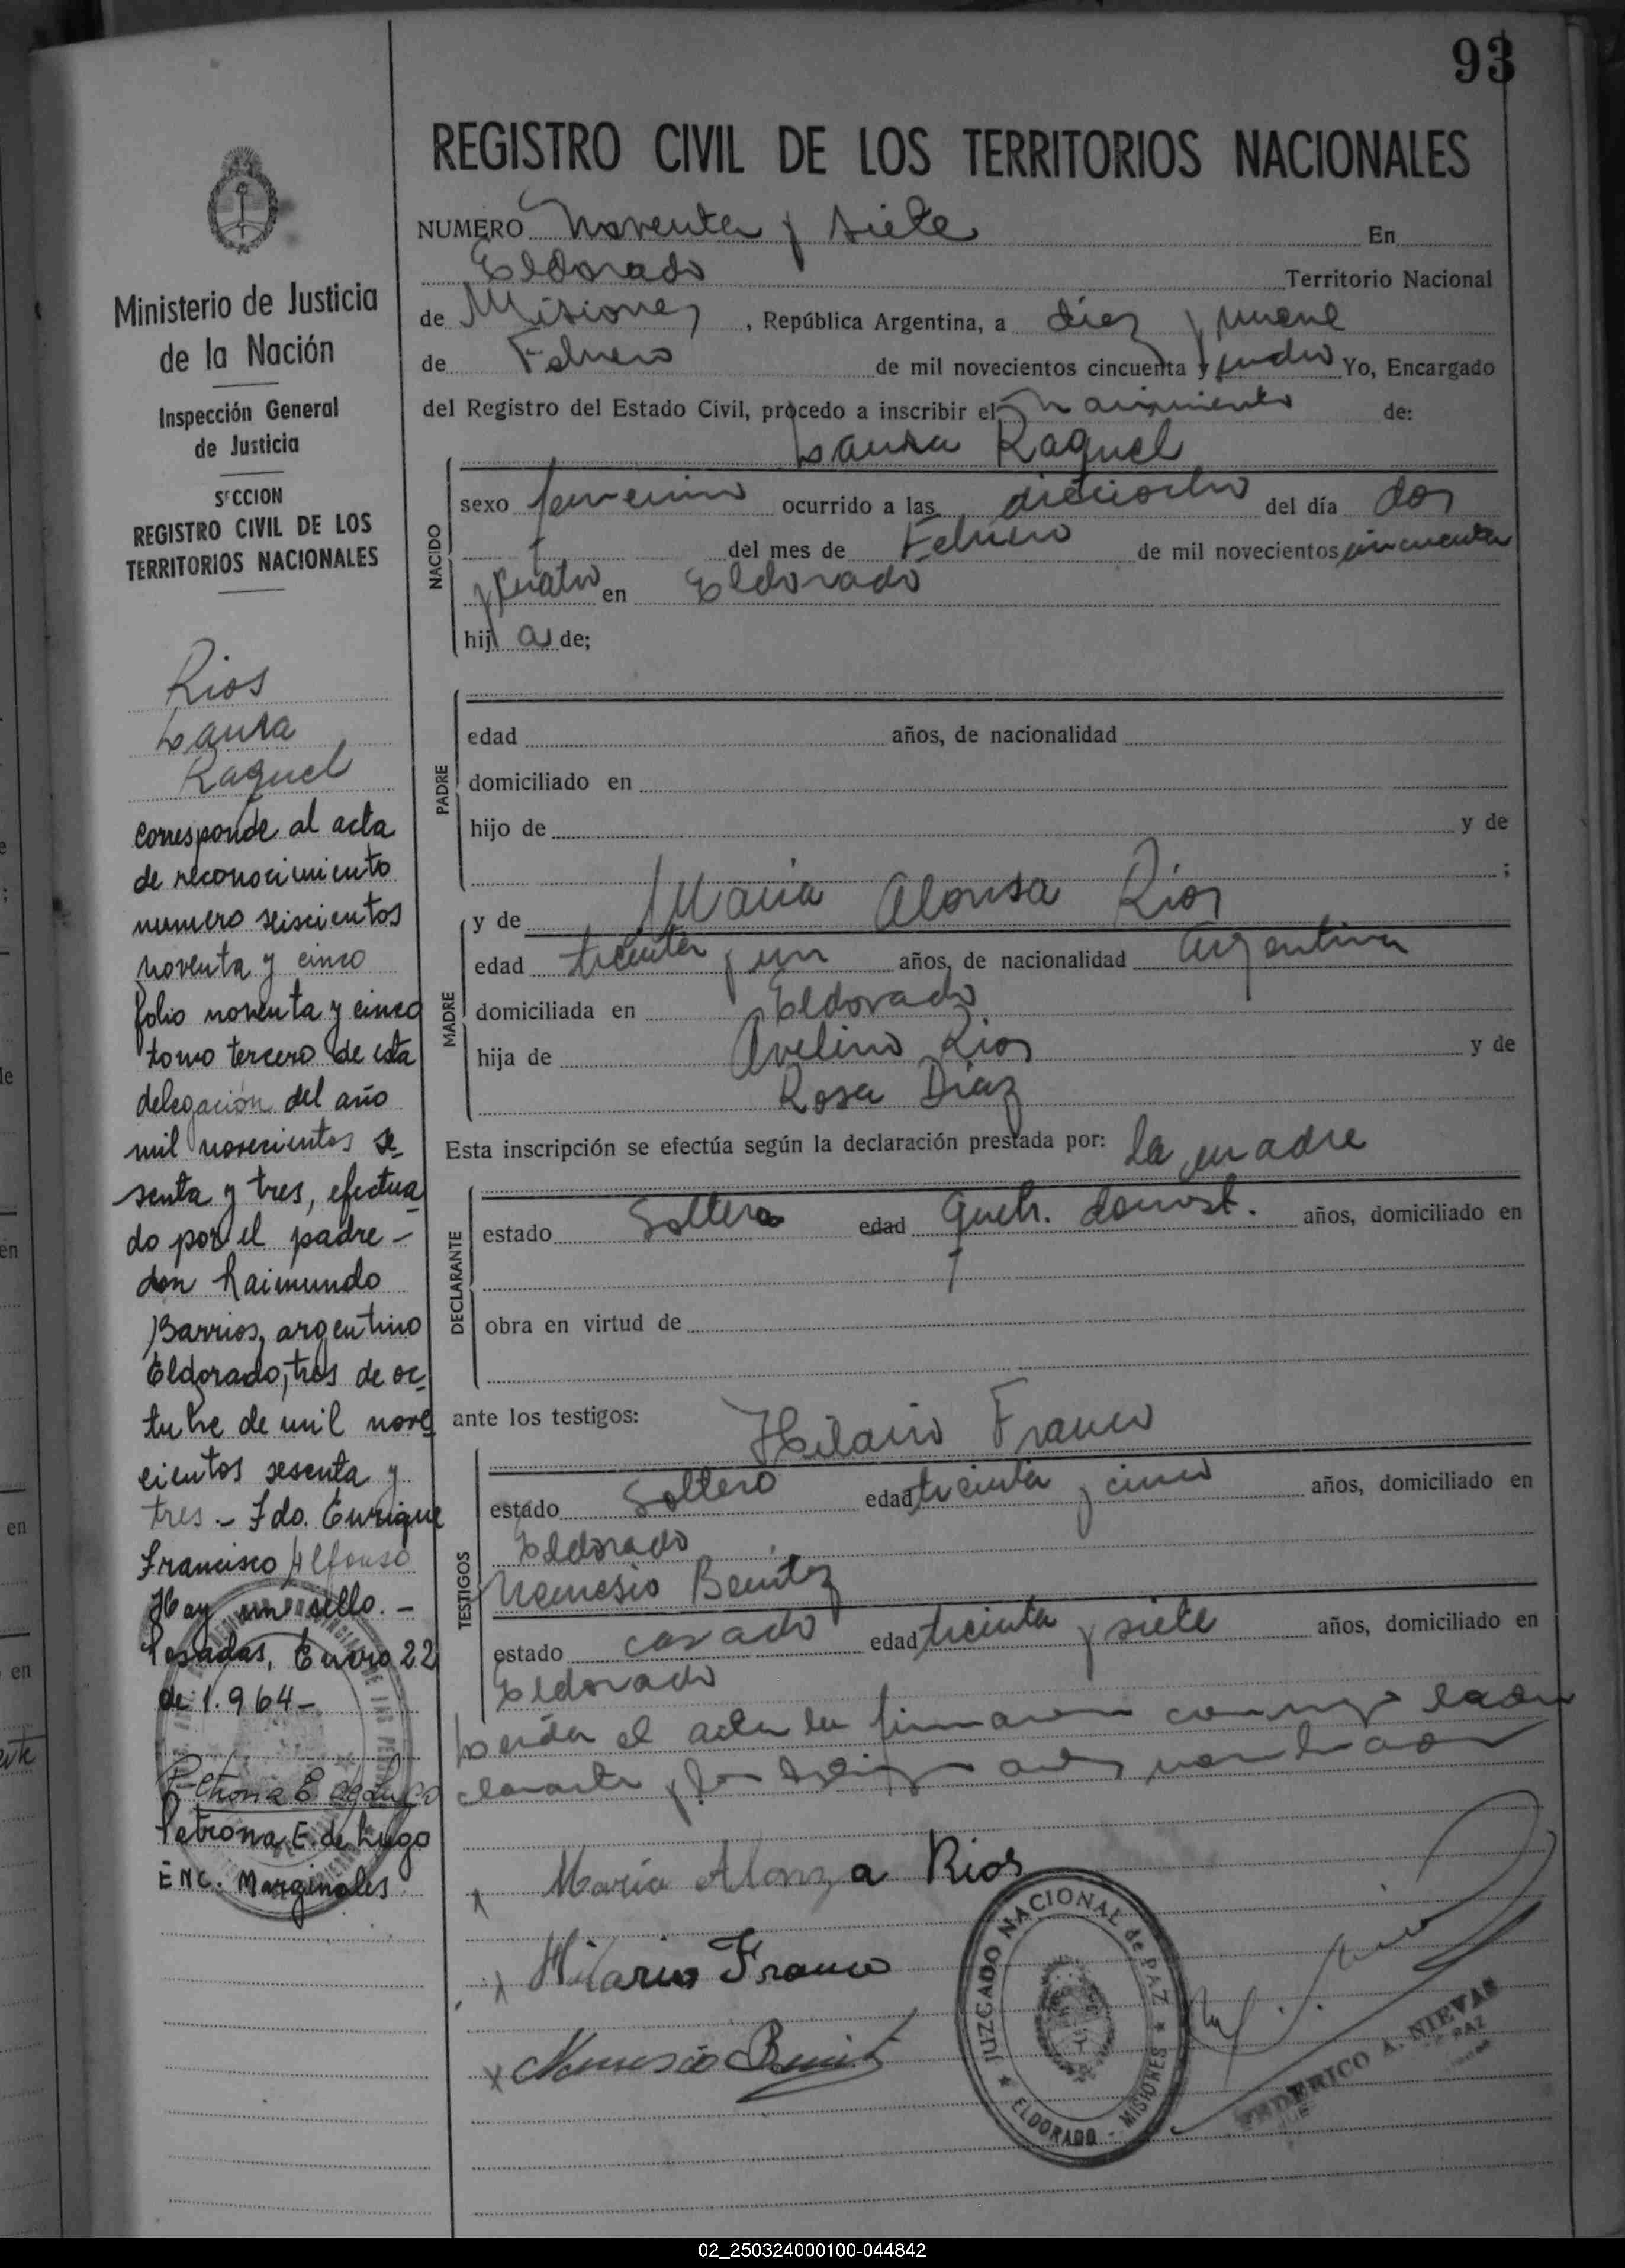 93
REGISTRO CIVIL DE LOS TERRITORIOS NACIONALES
Ministerio de Justicia
de la Nación
Inspección General
de Justicia
SECCION
REGISTRO CIVIL DE LOS
TERRITORIOS NACIONALES
Rios
Laura
Raquel
corresponde al acta
de reconocimiento
numero seiscientos
noventa y cinco
folio noventa y cinco
tomo tercero de esta
delegación del año
mil novecientos se-
senta y tres, efectua-
do por el padre -
don Raimundo
Barrios, argentino
Eldorado, tres de oc-
tubre de mil nove-
cientos sesenta y
tres - Fdo. Enrique
Francisco Alfonso
Hay un sello. -
Posadas, Enero 22
de 1.964 -
Petrona E de Lugo
Petrona E. de Lugo
ENC. Marginales
NUMERO Noventa y siete En
Eldorado Territorio Nacional
de Misiones, República Argentina, a diez y nueve
de Febrero de mil novecientos cincuenta y cuatro Yo, Encargado
del Registro del Estado Civil, procedo a inscribir el nacimiento de:
Laura Raquel
NACIDO
sexo femenino ocurrido a las dieciocho del día dos
del mes de Febrero de mil novecientos cincuenta
y cuatro en Eldorado
hij a de;
PADRE
edad años, de nacionalidad
domiciliado en
hijo de y de
;
MADRE
y de Maria Alonsa Rios
edad treinta y un años, de nacionalidad Argentina
domiciliada en Eldorado
hija de Avelino Rios y de
Rosa Diaz
Esta inscripción se efectúa según la declaración prestada por: la madre
DECLARANTE
estado Soltera edad Queh. domest. años, domiciliado en
obra en virtud de
ante los testigos: Hilario Franco
TESTIGOS
estado Soltero edad treinta y cinco años, domiciliado en
Eldorado
Nemesio Benitez
estado casado edad treinta y siete años, domiciliado en
Eldorado
Leida el acta la firmaron conmigo la de
clarante y los testigos antes nombrados
x María Alonza Rios
x Hilario Franco
x Nemesio Benitez
JUZGADO NACIONAL de PAZ
ELDORADO - MISIONES
FEDERICO A. NIEVAS
02_250324000100-044842